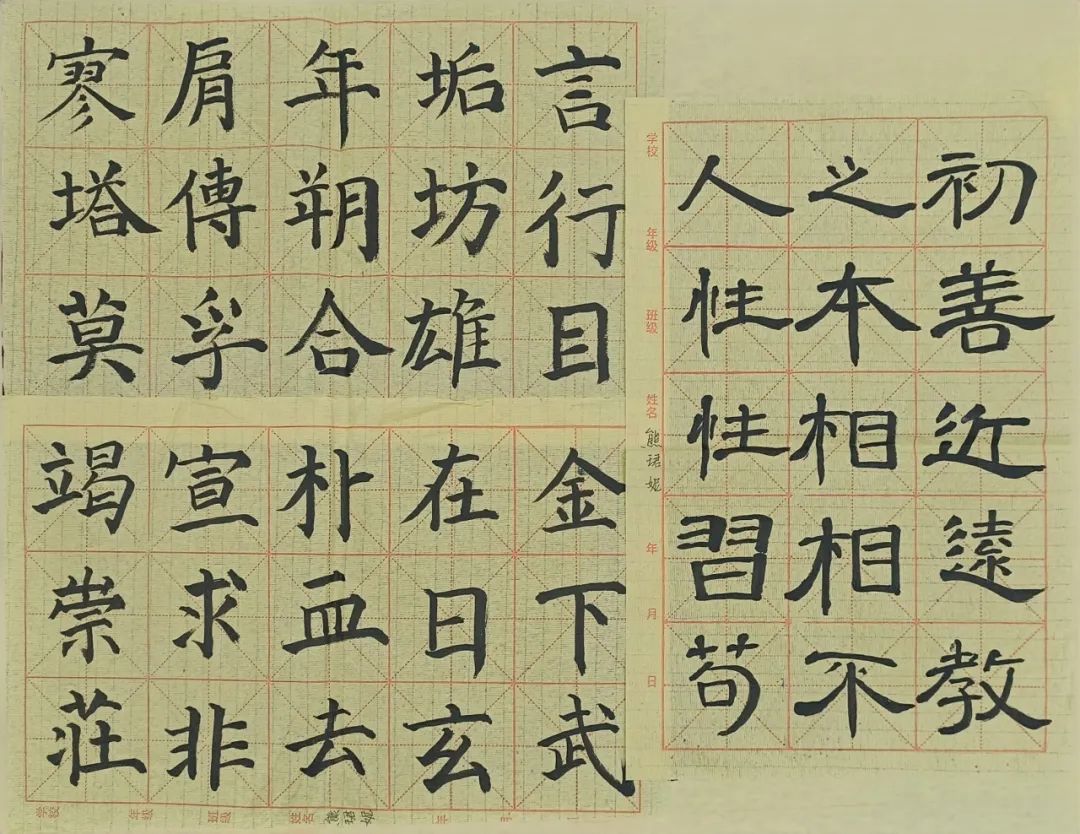 寥肩年垢言
塔傳朔坊行
莫孚合雄目
竭宣朴在金
崇求血日下
莊非去玄武
学校 年级 班级 姓名 熊珺妮 年 月
人之初
性本善
性相近
習相遠
苟不教
学校 年级 班级 姓名 熊珺妮 年 月 日